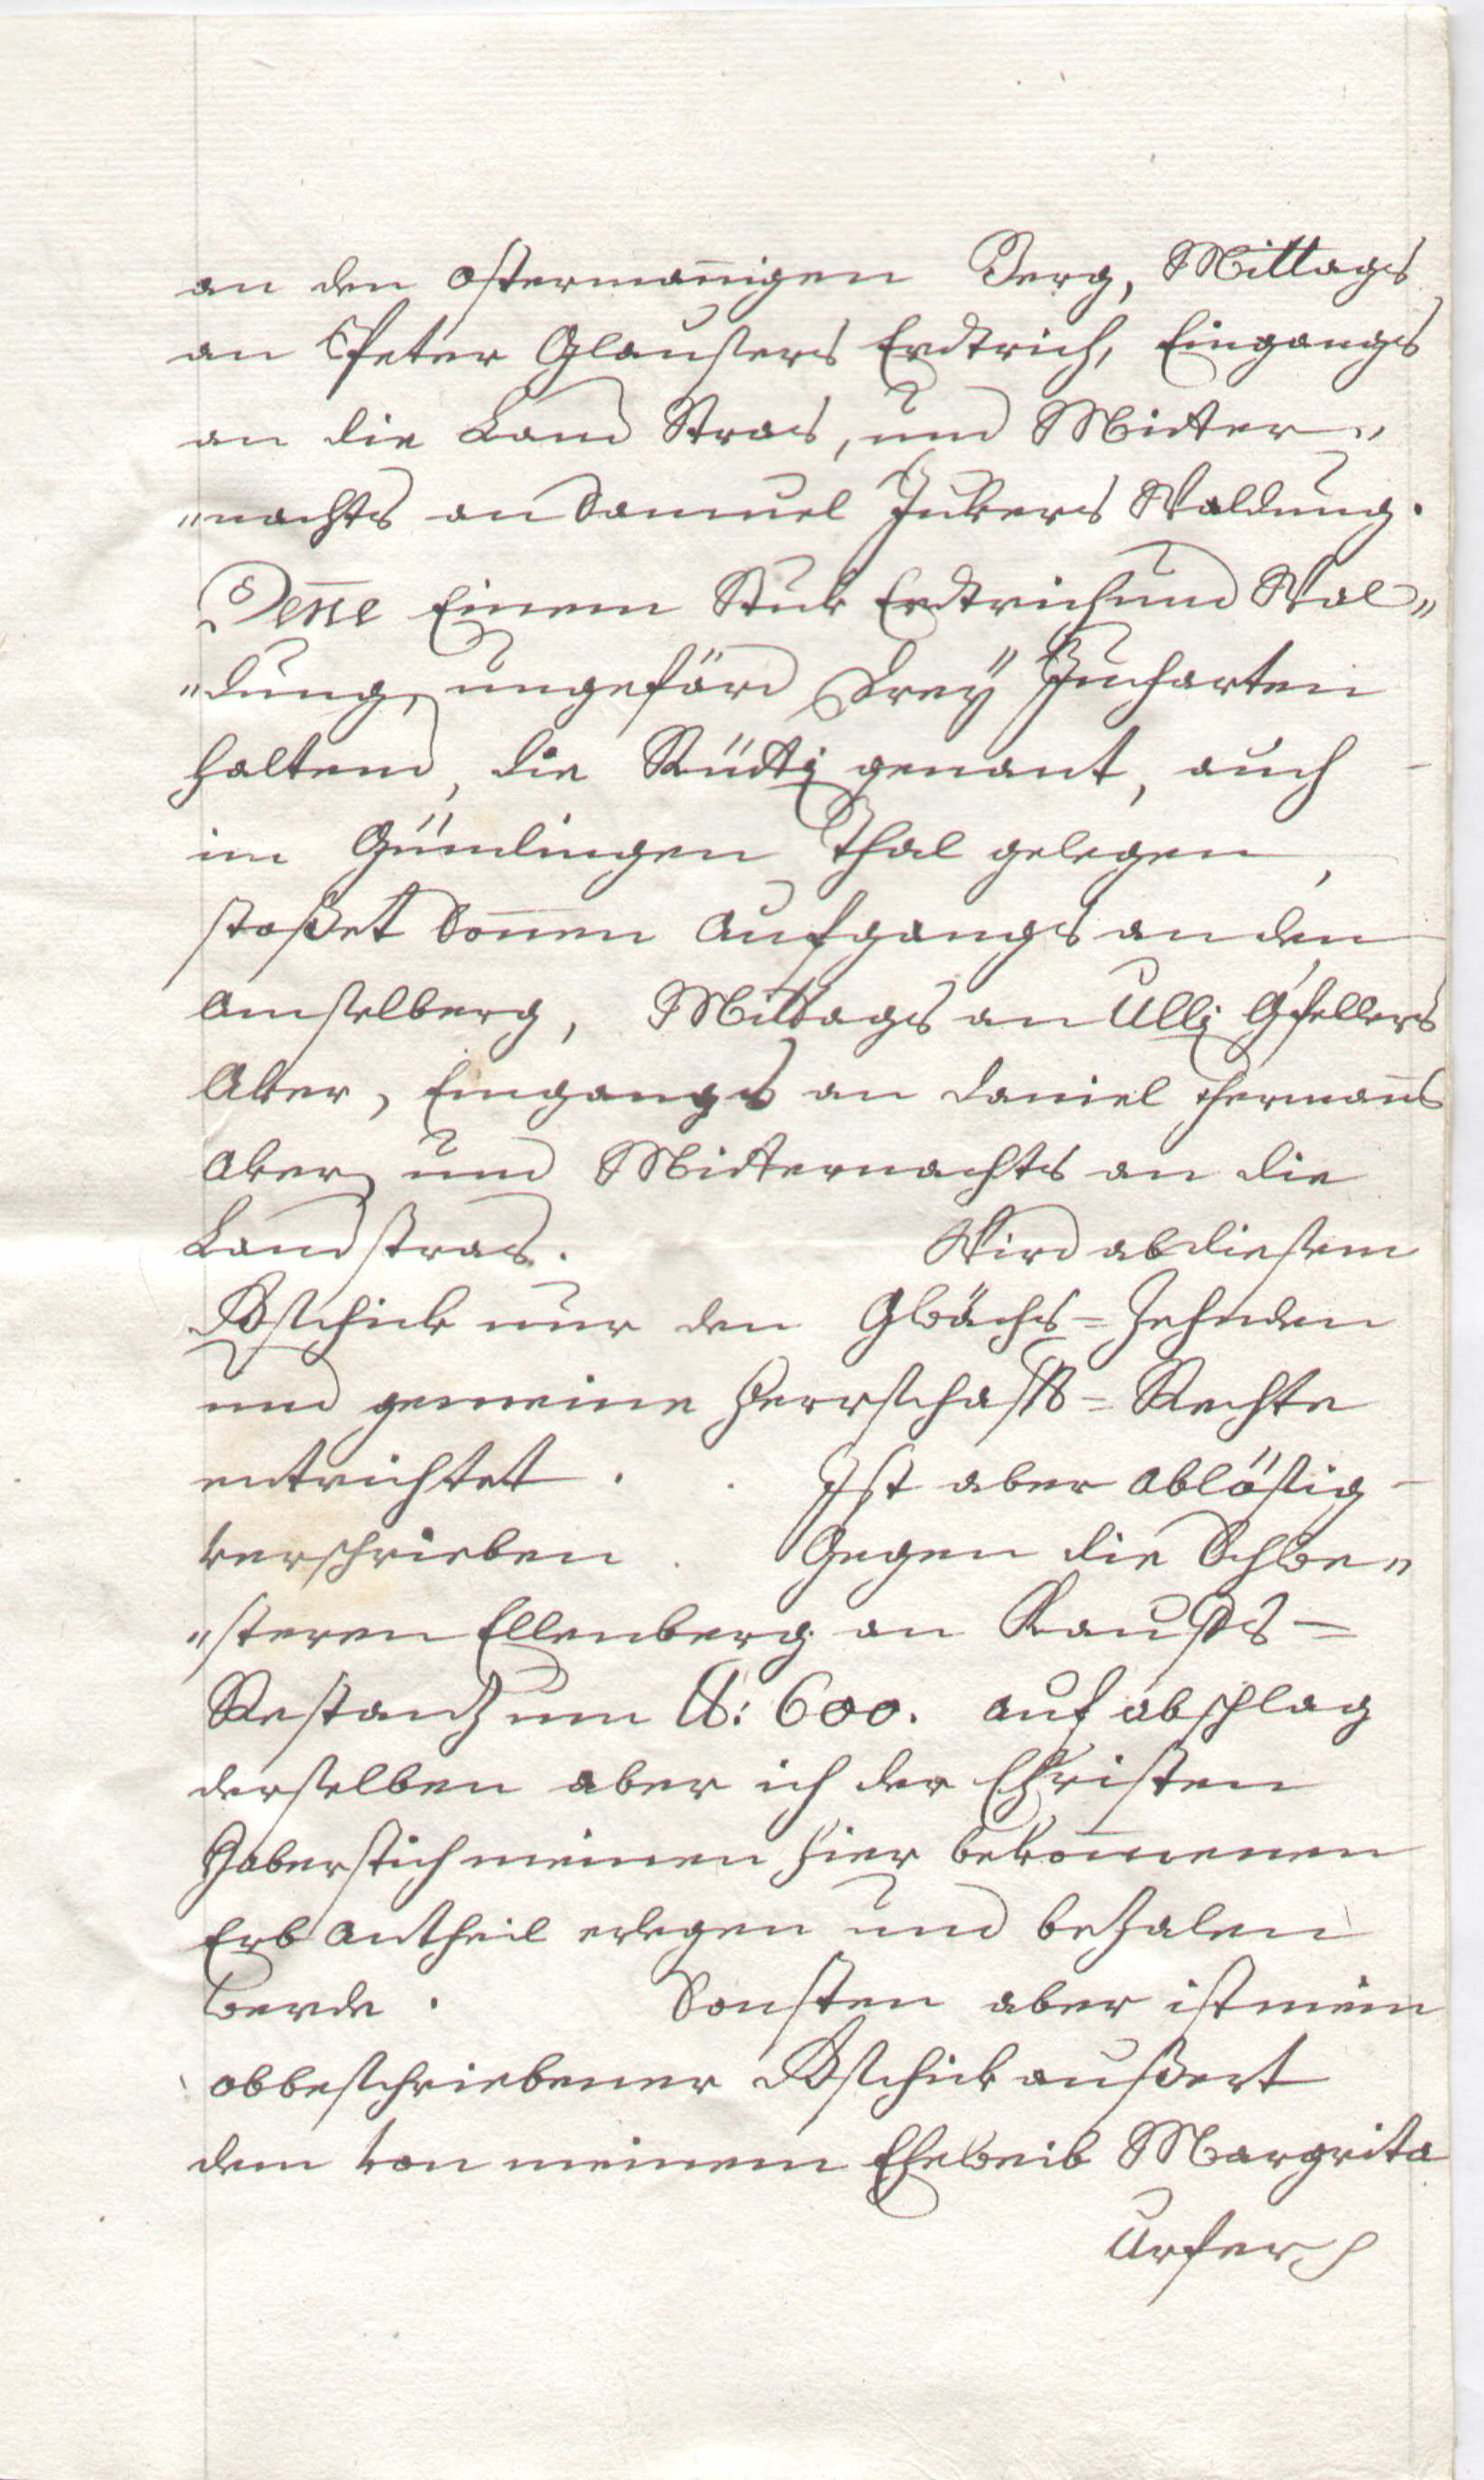 an den ostermanigen Berg, Mittags
an Peter Glausers Erdtrich, Eingangs
an die Land Stras, und Mitter„
„nachts an Samuel Jukers Waldung.
Dene Einem Stuk Erdtrich und Wal„
„dung, ungefärd Dreÿ Jucharten
haltend, die Rütti genant, auch
im Gümlingen Thal gelegen,
stoßet Sonnen Aufgangs an den
Amselberg, Mittags an Ulli Gfellers
Aker, Eingangs an Daniel Hermans
Aker, und Mitternachts an die
Landstras. Wird ab diesem
Bschick nur den Gwächs=Zehnden
und gemeine Herrschafts=Rechte
entrichtet. Ist aber ablösig
verschrieben. Gegen die Schwe„
„steren Ellenberg an Kaufs=
Restanz um ℔: 600. auf abschlag
derselben aber ich der Christen
Haberstich meinen hier bekomenen
Erb Antheil erlegen und bezalen
werde. Sonsten aber ist mein
obbeschriebener Bschick außert
dem von meinem Eheweib Margrita
Urfer